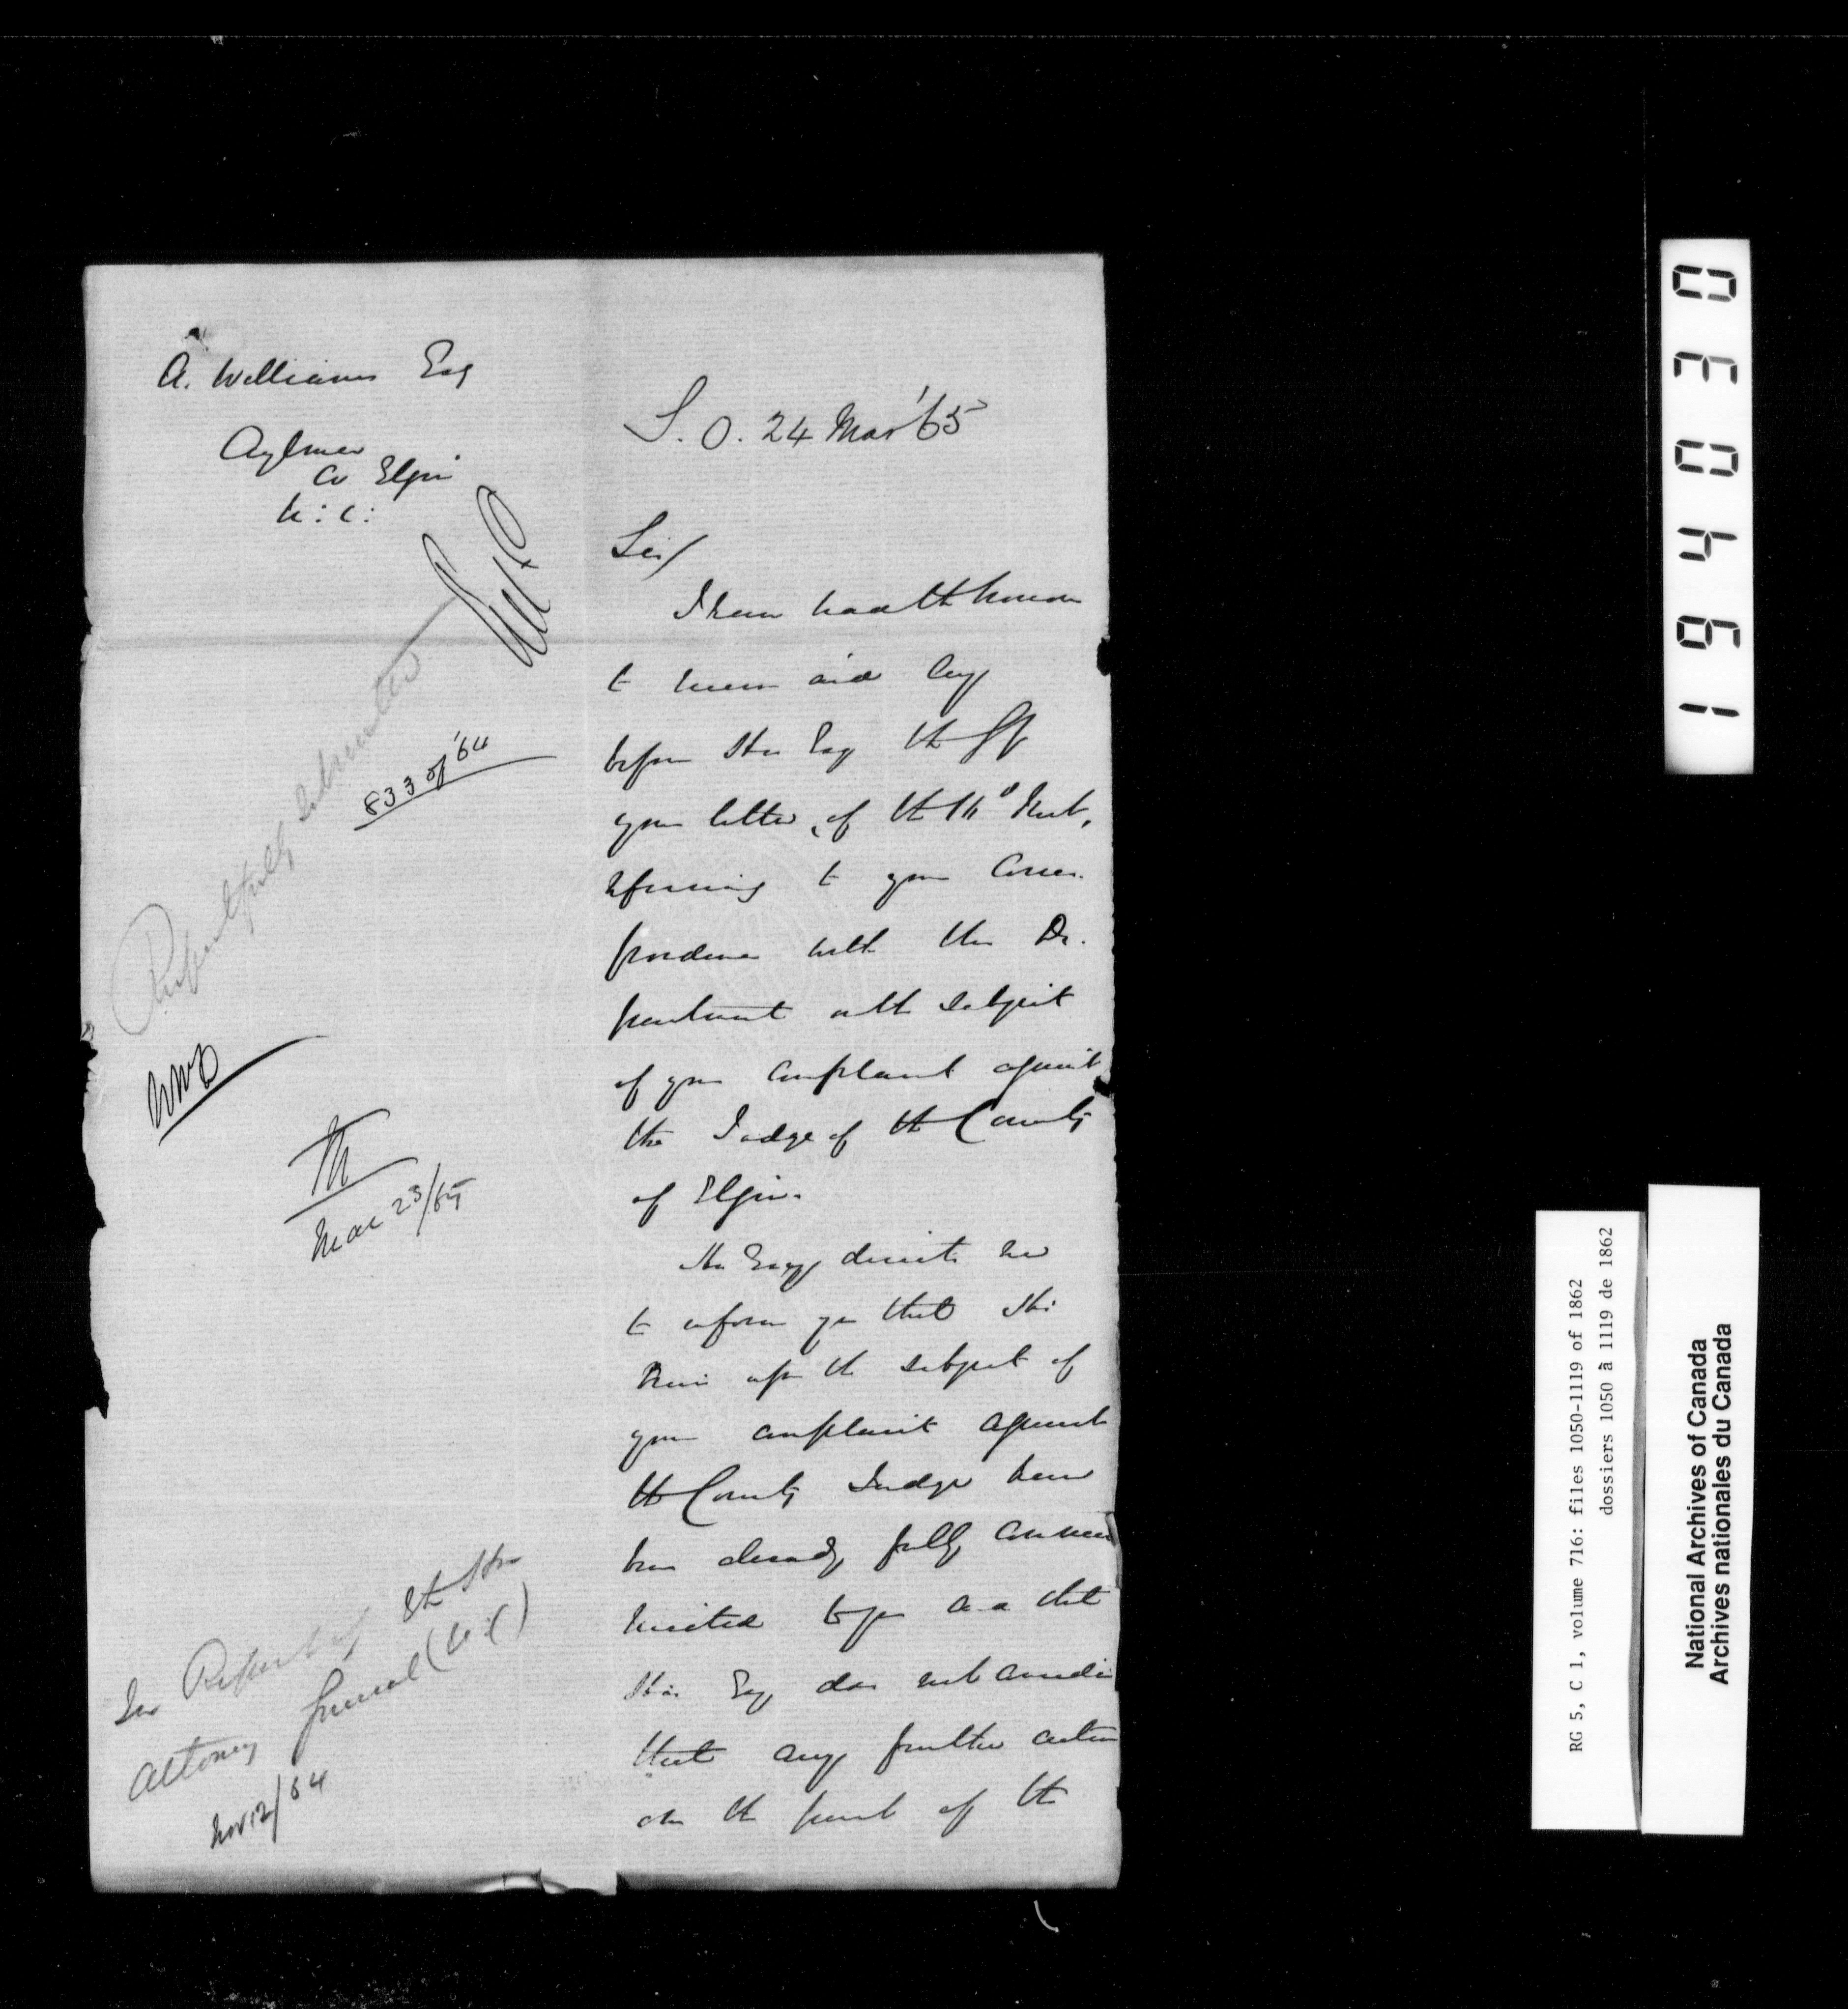 A. Williams Esq
Aylmer
Co Elgin
U: C:
Respectfully submitted
833 of '64
WMD
Mar 23/65
See Report of the Hon
Attorney General (U.C)
Nov 12/64
S. O. 24 Mar '65
Sir/
I have had the honor
to receive and lay
before His Exy the GG
your letter of the 16th Inst,
referring to your Corres-
pondence with this De-
partment on the subject
of your Complaint against
the Judge of the County
of Elgin.
His Excy directs me
to inform you that His
views upon the subject of
your complaint against
the County Judge have
been already fully commu
nicated to you and that
His Exy does not consider
that any further action
on the part of the
194030
RG 5, C 1, volume 716: files 1050-1119 of 1862
dossiers 1050 à 1119 de 1862
National Archives of Canada
Archives nationales du Canada